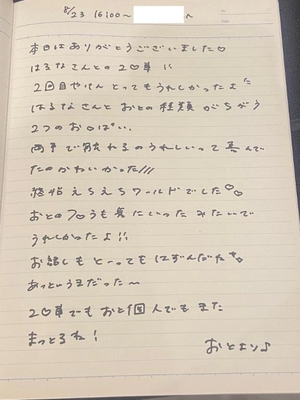 8/23 16:00〜
本日はありがとうございました♡
はるなさんとの2○車!!
2回目やけんとってもうれしかったよ
はるなさんとおとの種類がちがう
2つのお○ぱい。
両手で触わるのうれしいって喜んで
たのかわいかった///
終始えちえちワールドでした♡。
おとのフ○うも気にいったみたいで
うれしかったよ!!
お話しもとーってもはずんだね
あっというまだった〜
2○車でもおと個人でもまた
まっとるね!
おとより♪